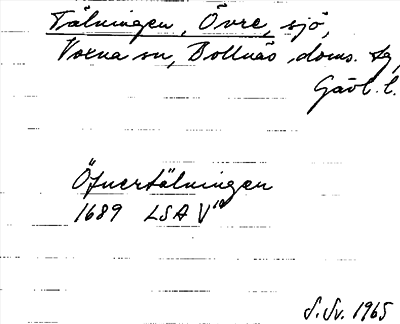 Tälningen, Övre, sjö,
Voxna sn, Bollnäs doms. tg,
Gävl. l.
Öfvertälningen
1689 LSA V 10
S. Sv. 1965